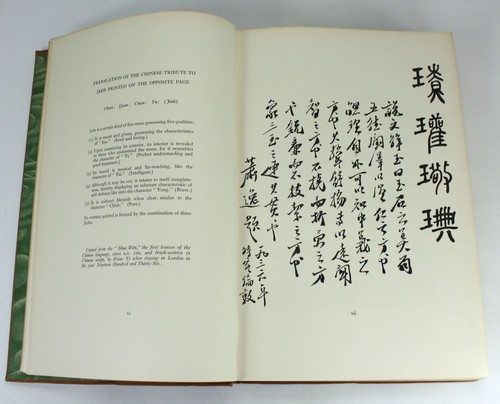 TRANSLATION OF THE CHINESE TRIBUTE TO
JADE PRINTED ON THE OPPOSITE PAGE.
Yu: (Jade).
Jade is a certain kind of fine stone possessing five qualities:
(1) It is moist and glossy, possessing the characteristics
of "Jen." (Kind and loving.)
(2) Upon examining its exterior, its interior is revealed
to those who understand the stone, for it resembles
the character of "Yi." (Perfect understanding and
treatment.)
(3) Its sound is musical and far-reaching, like the
character of "(Intelligent.)
(4) Although it may be cut, it retains to itself complete-
ness, thereby displaying an inherent characteristic of
self-defence like unto the character "Yung." (Brave.)
(5) It is without blemish when clear, similar to the
character "(Pure.)
Its notion symbol is formed by the combination of three
Jades.
Copied from the "Shuo Wên," the first lexicon of the
Chinese language, A.D. 100, and brush-written in
Chinese script, by Hsiao Yi when staying in London in
the year Nineteen Hundred and Thirty-Six.
說文解玉曰玉石之美有
五德潤澤以溫仁之方也
䚡理自外可以知中義之
方也其聲舒揚專以遠聞
智之方也不撓而折勇之方
也銳廉而不技絜之方也
象三玉之連丨其貫也
蕭逸題
一九三六年
時客倫敦